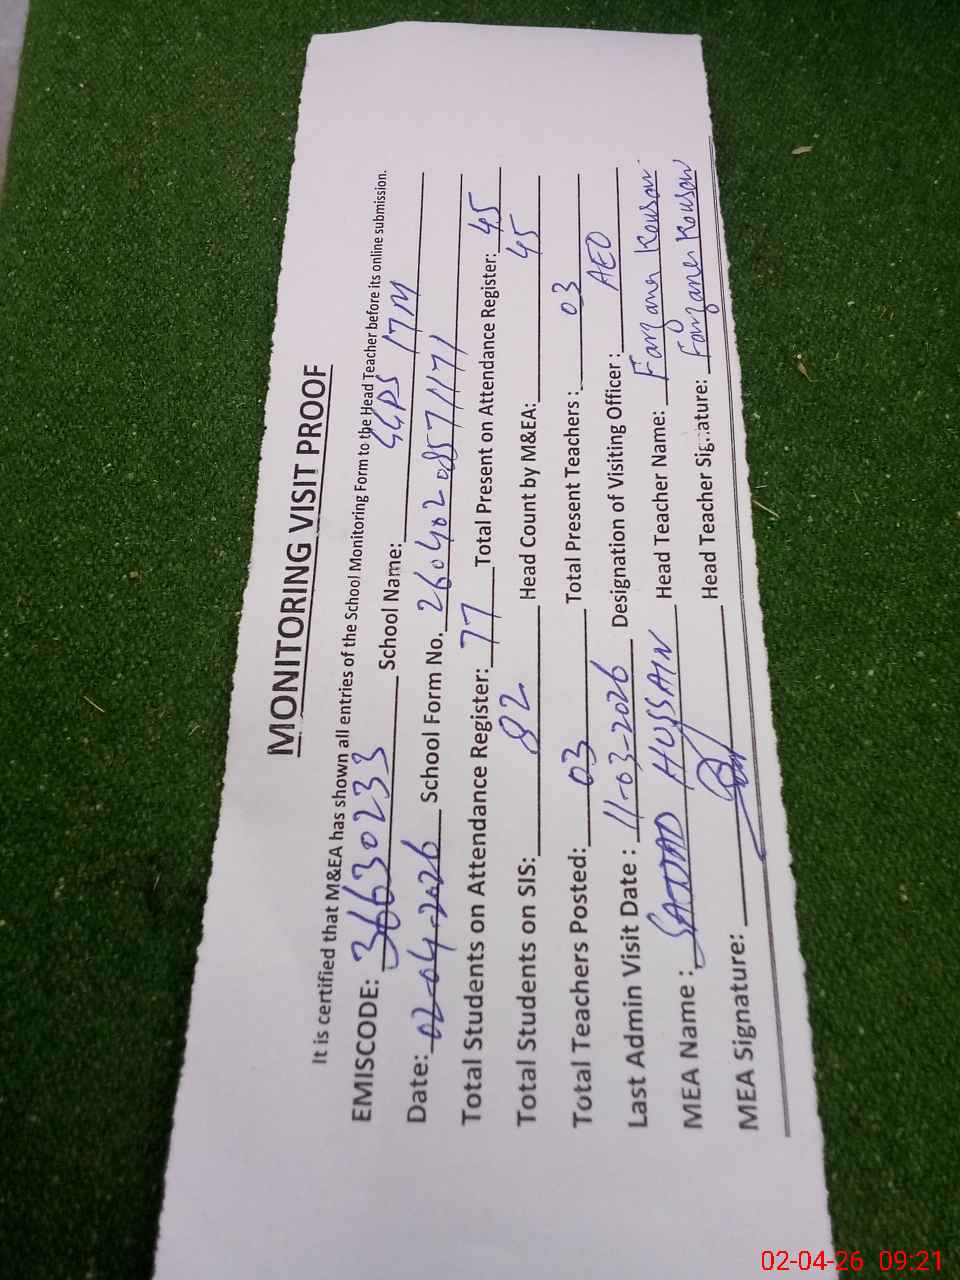 MONITORING VISIT PROOF
It is certified that M&EA has shown all entries of the School Monitoring Form to the Head Teacher before its online submission.
EMISCODE: 36630233 School Name: GGPS 17M
Date: 02-04-2026 School Form No. 260402085711171
Total Students on Attendance Register: 77 Total Present on Attendance Register: 45
Total Students on SIS: 82 Head Count by M&EA: 45
Total Teachers Posted: 03 Total Present Teachers: 03
Last Admin Visit Date: 11-03-2026 Designation of Visiting Officer: AEO
MEA Name: SAJJAD HUSSAIN Head Teacher Name: Farzana Kousar
MEA Signature: Head Teacher Signature: Farzana Kousar
02-04-26 09:21